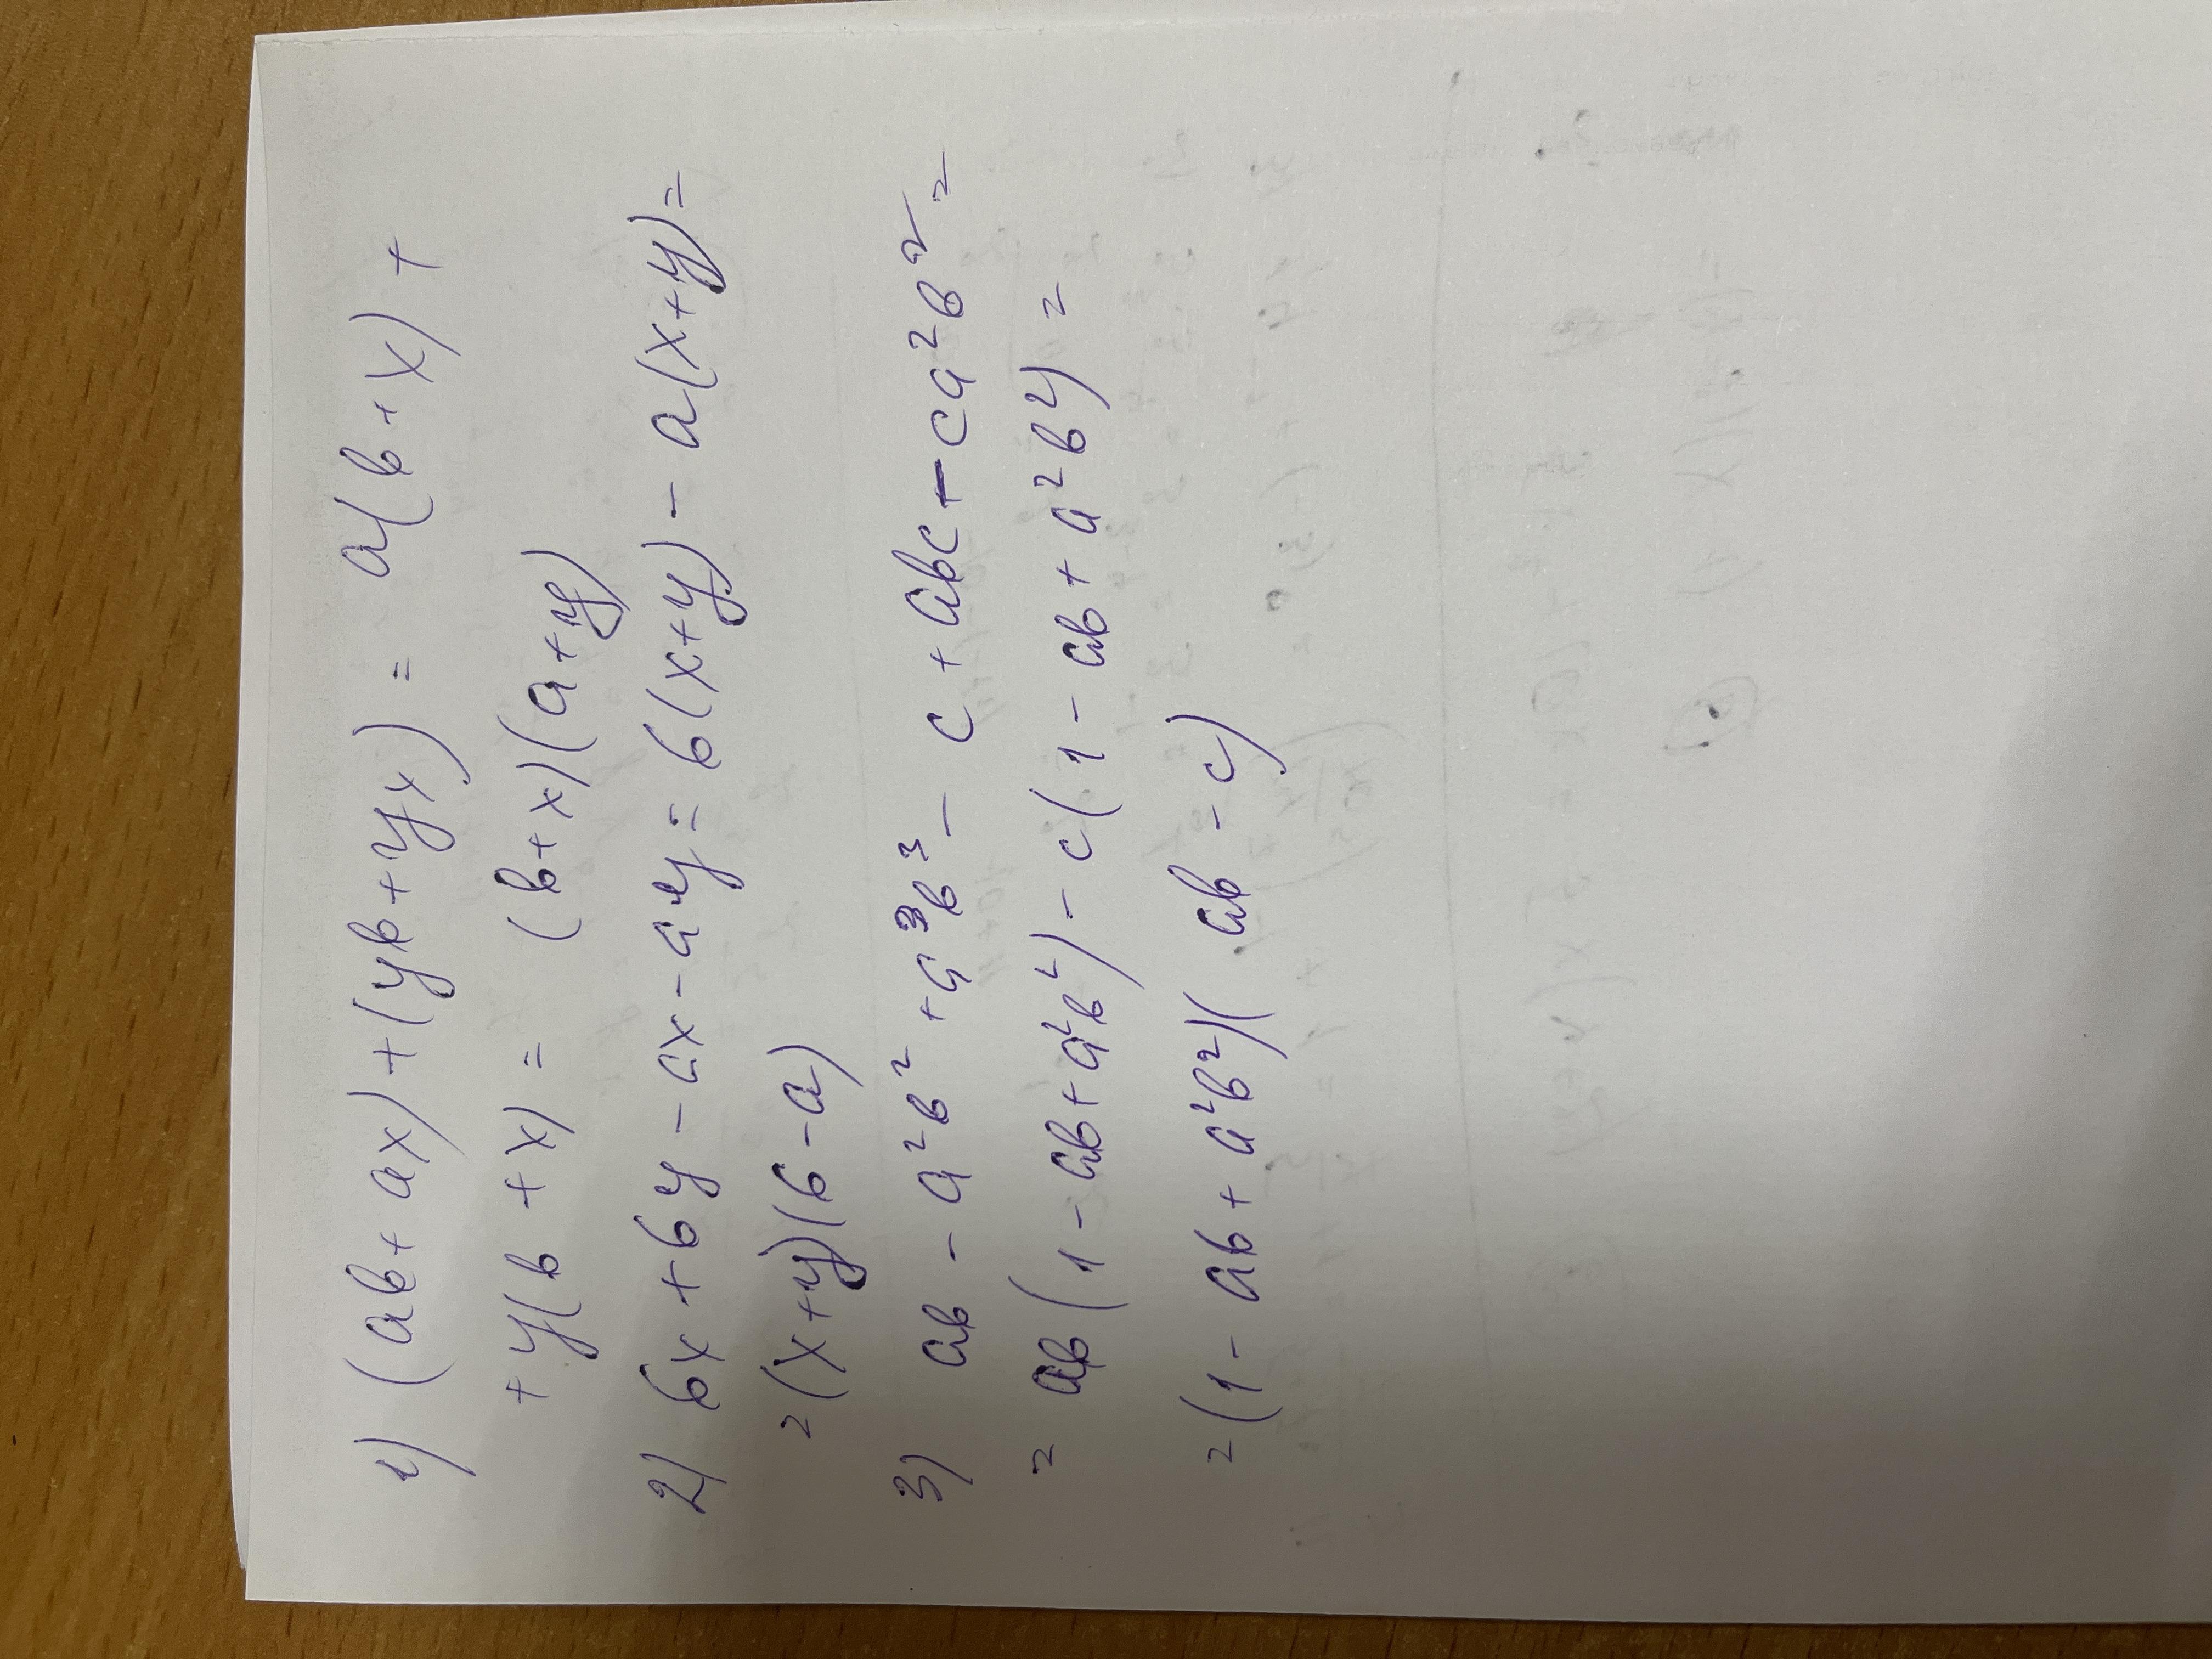 1) (ab + ax) + (yb + yx) = a(b + x) +
+ y(b + x) = (b + x)(a + y)
2) 6x + 6y - ax - ay = 6(x + y) - a(x + y) =
= (x + y)(6 - a)
3) ab - a²b² + a³b³ - c + abc - ca²b² =
= ab(1 - ab + a²b²) - c(1 - ab + a²b²) =
= (1 - ab + a²b²)(ab - c)